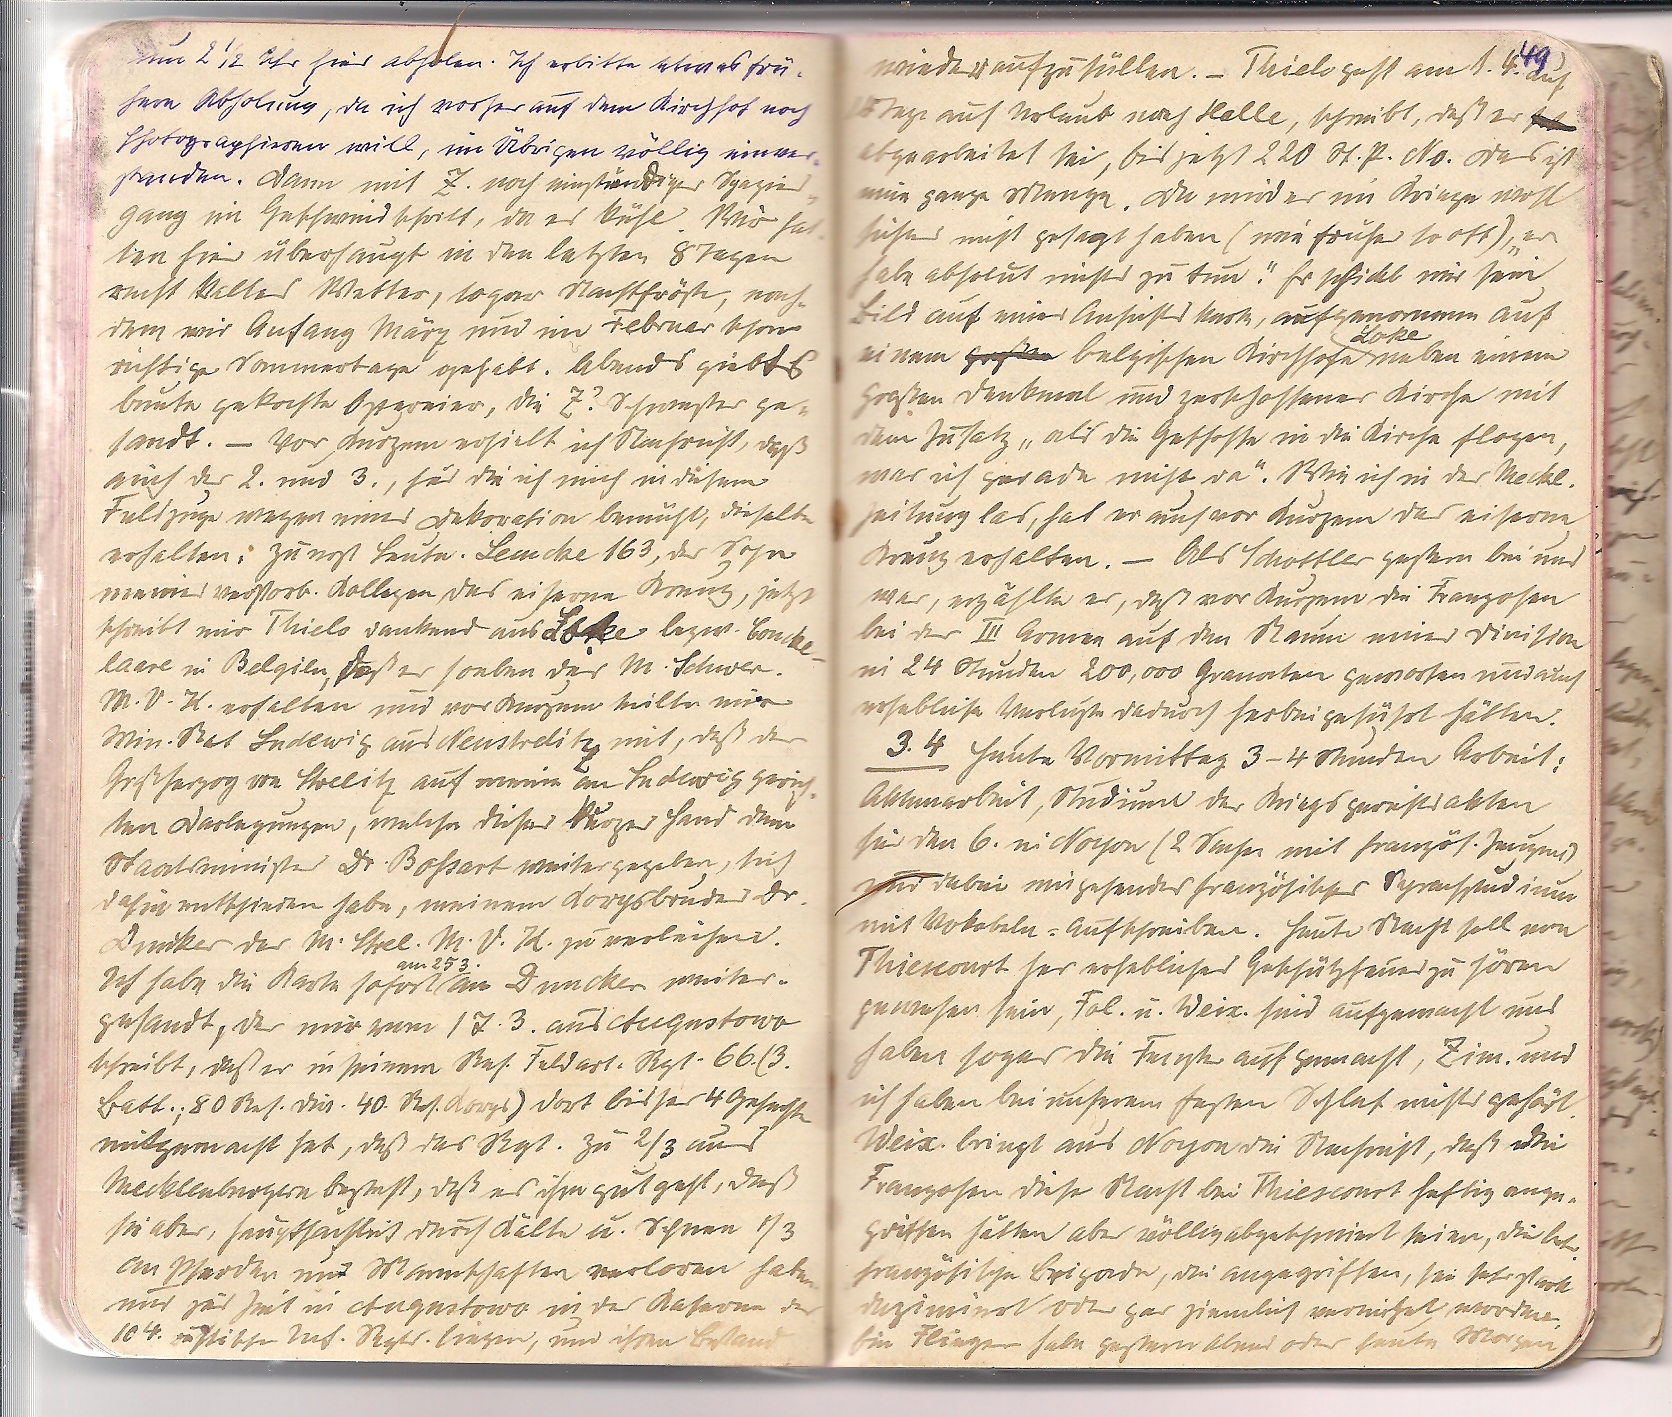 um 2 1/2 Uhr hier abholen. Ich erbitte etwas frü-
here Abholung, da ich vorher auf dem Kirchhof noch
Photographieren will, im Übrigen völlig einver-
standen. Dann mit Z. noch einstündiger Spazier-
gang im Geschwindschritt, da es kühl. Wir hat-
ten hier überhaupt in den letzten 8 Tagen
recht kaltes Wetter, sogar Nachtfröste, nach-
dem wir Anfang März und im Februar schon
richtige Sommertage gehabt. Abends giebt es
bunte gekochte Ostereier, die Z's Schwester ge-
sandt. – Vor Kurzem erhielt ich Nachricht, daß
auch der 2. und 3., für die ich mich in diesem
Feldzuge wegen einer Dekoration bemüht, dieselbe
erhalten: zuerst Leutn. Lemcke 163, der Sohn
meines verstorb. Kollegen, das eiserne Kreuz, jetzt
schreibt mir Thielo dankend aus Loke bezw. Coucke-
laare in Belgien, daß er soeben das M. Schwer.
M. V. K. erhalten und vor Kurzem teilte mir
Min. Rat Ludewig aus Neustrelitz mit, daß der
Großherzog von Strelitz auf meine an Ludewig gerich-
ten Darlegungen, welche dieser kurzer Hand dem
Staatsminister Dr. Bossart weitergegeben, sich
dahin entschieden habe, meinem Korpsbruder Dr.
Duncker das M. Strel. M. V. K. zu verleihen.
Ich habe die Karte sofort am 25 3. an Duncker weiter-
gesandt, der mir vom 17. 3. aus Augustowo
schreibt, daß er in seinem Res. Feldart. Rgt. 66. (3.
Batt.; 80 Res. Div. 40. Res. Korps) dort bisher 4 Gefechte
mitgemacht hat, daß das Rgt. zu 2/3 aus
Mecklenburgern besteht, daß es ihm gut geht, daß
sie aber, hauptsächlich durch Kälte u. Schnee 1/3
an Pferden und Mannschaften verloren haben
und zur Zeit in Augustowo in der Kaserne des
104. russischen Inf. Rgts. liegen, um ihren Bestand
49
wieder aufzufüllen. – Thielo geht am 1. 4. auf
Tage auf Urlaub nach Halle, schreibt, daß er
abgearbeitet sei, bis jetzt 220 St. P. No. das ist
eine ganze Menge. Da würde er im Kriege wohl
nicht gesagt haben (wie früher so oft), „er
habe absolut nichts zu tun". Er schickt mir sein
Bild auf einer Ansichtskarte, aufgenommen auf
einem belgischen Kirchhofe Loke neben einem
großen Denkmal und zerschossener Kirche mit
dem Zusatz „als die Geschosse in die Kirche flogen,
war ich gerade nicht da". Wie ich in der Meckl.
Zeitung las, hat er auch vor Kurzem das eiserne
Kreuz erhalten. – Als Schottler gestern bei uns
war, erzählte er, daß vor Kurzem die Franzosen
bei der III Armee auf den Raum einer Division
in 24 Stunden 200,000 Granaten geworfen und auch
erhebliche Verluste dadurch herbeigeführt hätten.
3. 4 Heute Vormittag 3–4 Stunden Arbeit:
Aktenarbeit, Studium der Kriegsgerichtsakten
für den 6. in Noyon (2 Sachen mit französ. Zeugen)
und dabei eingehendes französisches Sprachstudium
mit Vokabeln=Aufschreiben. Heute Nacht soll von
Thiescourt her erhebliches Geschützfeuer zu hören
gewesen sein, Fal. u. Weix. sind aufgewacht und
haben sogar die Fenster aufgemacht, Zim. und
ich haben bei unserem festen Schlaf nichts gehört.
Weix. bringt aus Noyon die Nachricht, daß die
Franzosen diese Nacht bei Thiescourt heftig ange-
griffen hätten aber völlig abgeschmiert seien, die betr.
französische Brigade, die angegriffen, sei sehr stark
dezimiert oder gar ziemlich vernichtet worden.
Ein Flieger habe gestern Abend oder heute Morgen